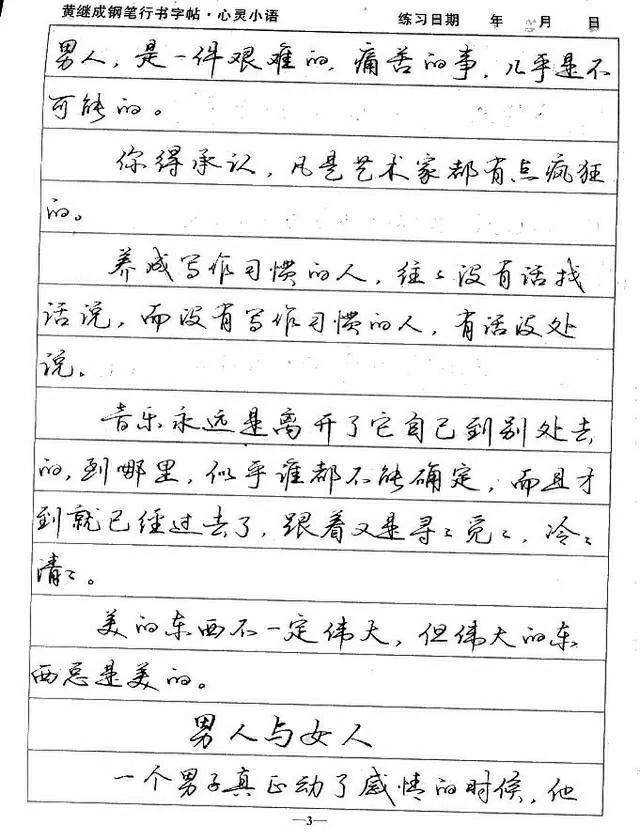 黄继成钢笔行书字帖·心灵小语 练习日期 年 月 日
男人，是一件艰难的，痛苦的事，几乎是不
可能的。
你得承认，凡是艺术家都有点疯狂
的。
养成写作习惯的人，往〻没有话找
话说，而没有写作习惯的人，有话没处
说。
音乐永远是离开了它自己到别处去
的，到哪里，似乎谁都不能确定，而且才
到就已经过去了，跟着又是寻〻觅〻，冷〻
清〻。
美的东西不一定伟大，但伟大的东
西总是美的。
男人与女人
一个男子真正动了感情的时候，他
—3—